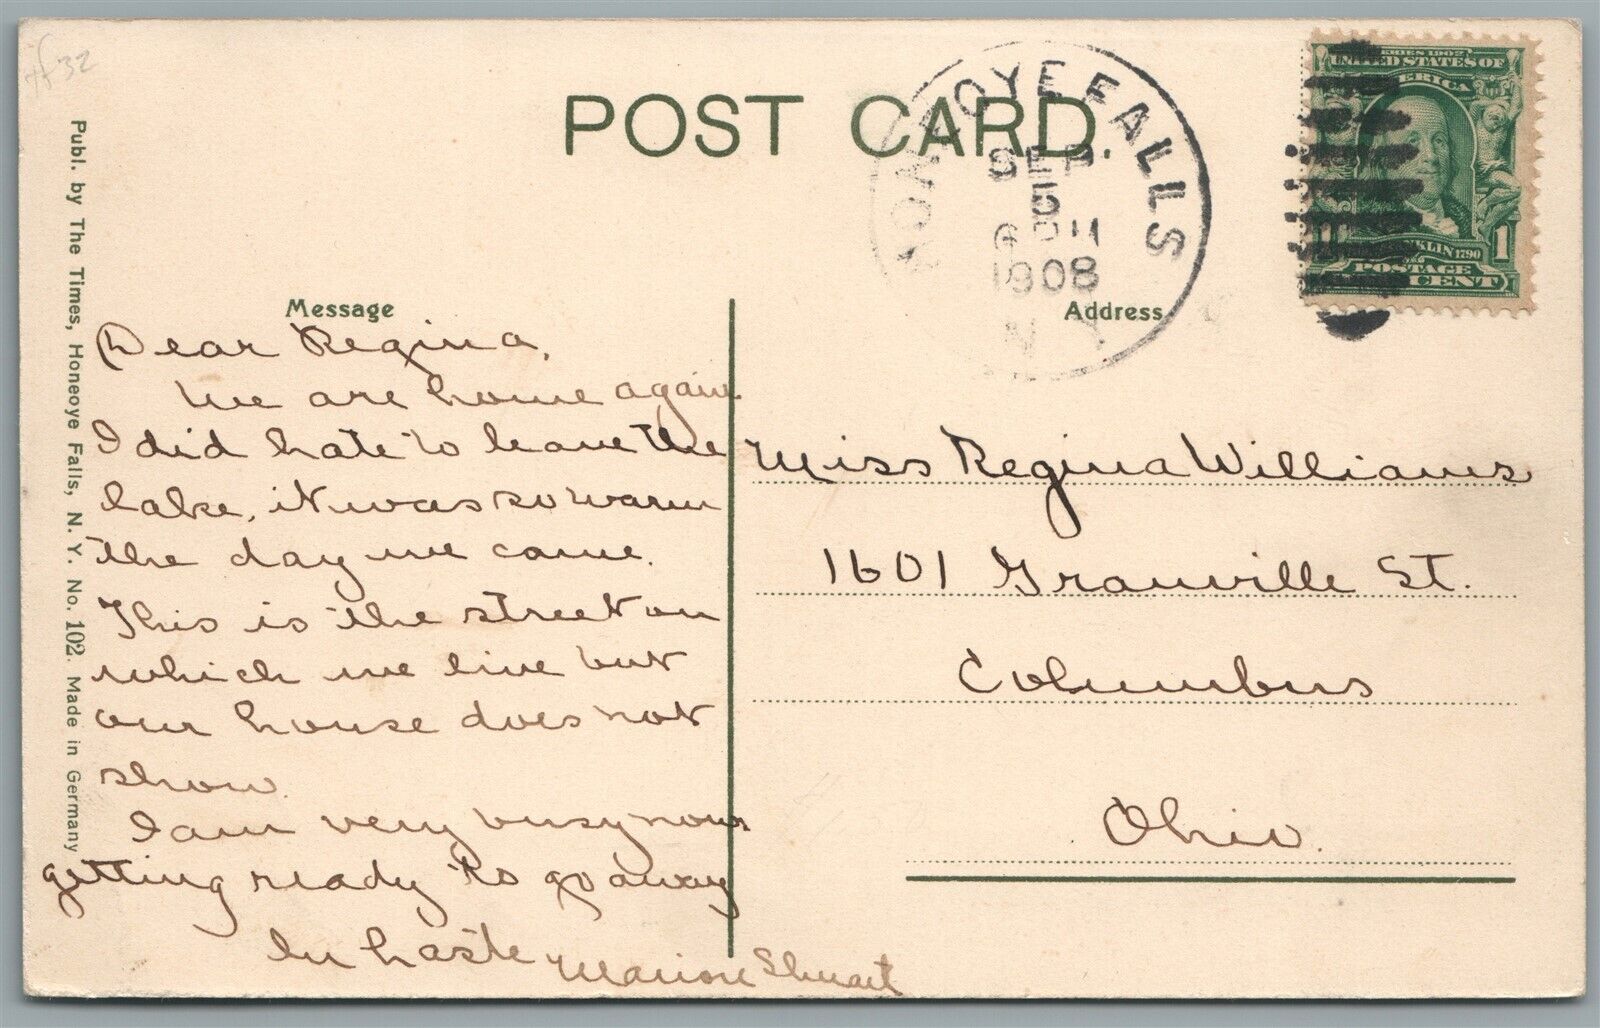 #32
POST CARD.
HONEOYE FALLS
SEP
5
6 PM
1908
N.Y.
SERIES 1902
UNITED STATES OF
AMERICA
FRANKLIN 1790
1
POSTAGE
CENT
Message
Address
Dear Regina,
We are home again
I did hate to leave the
lake, it was so warm
the day we came.
This is the street on
which we live but
our house does not
show.
I am very busy now
getting ready to go away
In haste Marion Stuart
Miss Regina Williams
1601 Granville St.
Columbus
Ohio.
Publ. by The Times, Honeoye Falls, N. Y. No. 102. Made in Germany